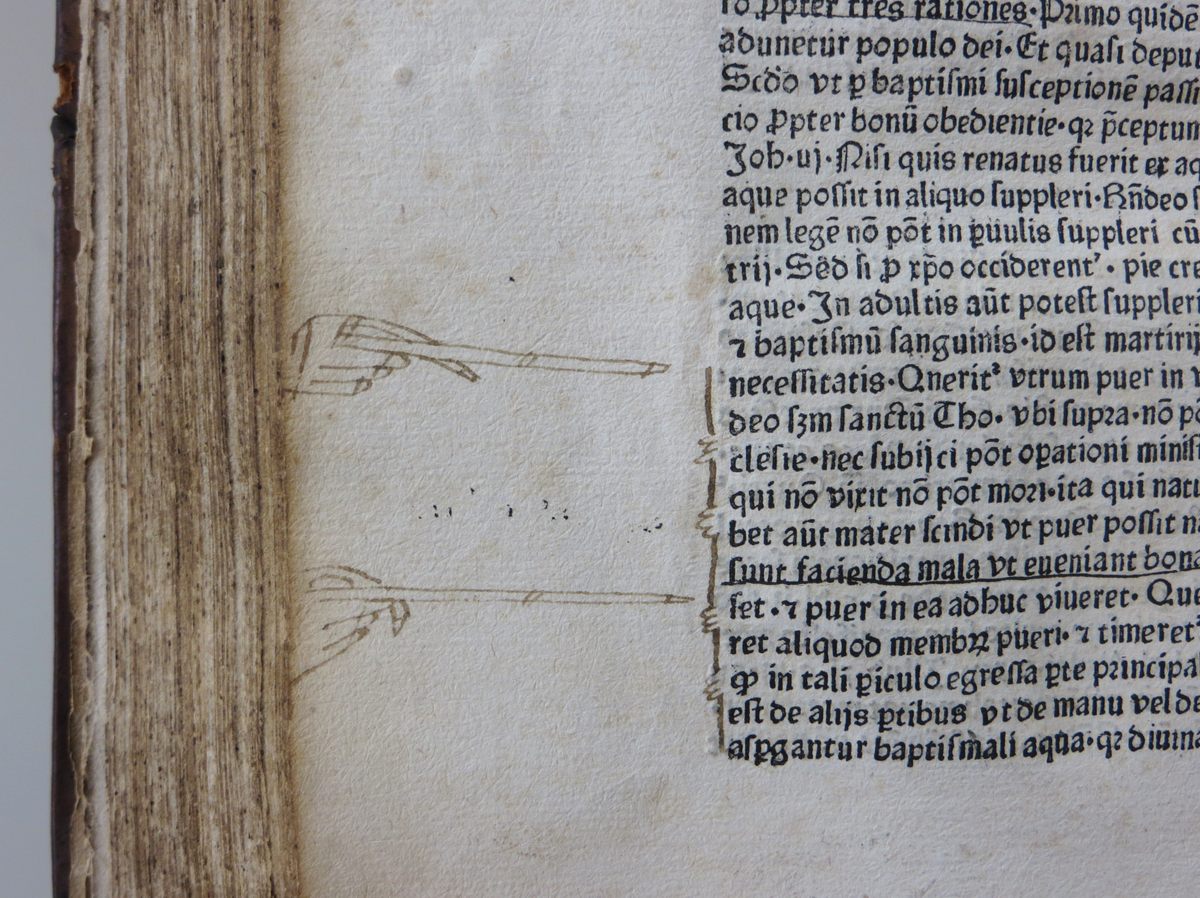 ꝓpter tres rationes. Primo quidē
adunetur populo dei. Et quasi deput
Scd̄o vt ꝑ baptiſmi ſuſceptionē paſſi
cio ꝓpter bonū obedientie. qꝛ p̄ceptum
Joh. uj. Niſi quis renatus fuerit ex aq
aque poſſit in aliquo ſuppleri. Rn̄deo ſ
nem legē nō pōt in ꝑuulis ſuppleri cū
trij. Sed ſi ꝓ xp̄o occiderentᷣ. pie cre
aque. Jn adultis aūt poteſt ſuppleri
⁊ baptiſmū ſanguinis. id eſt martirij
neceſſitatis. Qneritᷣ vtrum puer in v
deo ſꝫm ſanctū Tho. vbi ſupꝛa. nō po
cleſie. nec ſubijci pōt oꝑationi miniſt
qui nō vixit nō pōt moꝛi. ita qui natu
bet aūt mater ſcindi vt puer poſſit n
ſunt facienda mala vt eueniant bona
ſet. ⁊ puer in ea adhuc viueret. Que
ret aliquod membꝝ pueri. ⁊ timeretᷣ
ꝙ in tali ꝑiculo egreſſa ꝑte pꝛincipa
eſt de alijs ꝑtibus vt de manu vel de
aſꝑgantur baptiſmali aqua. qꝛ diuina